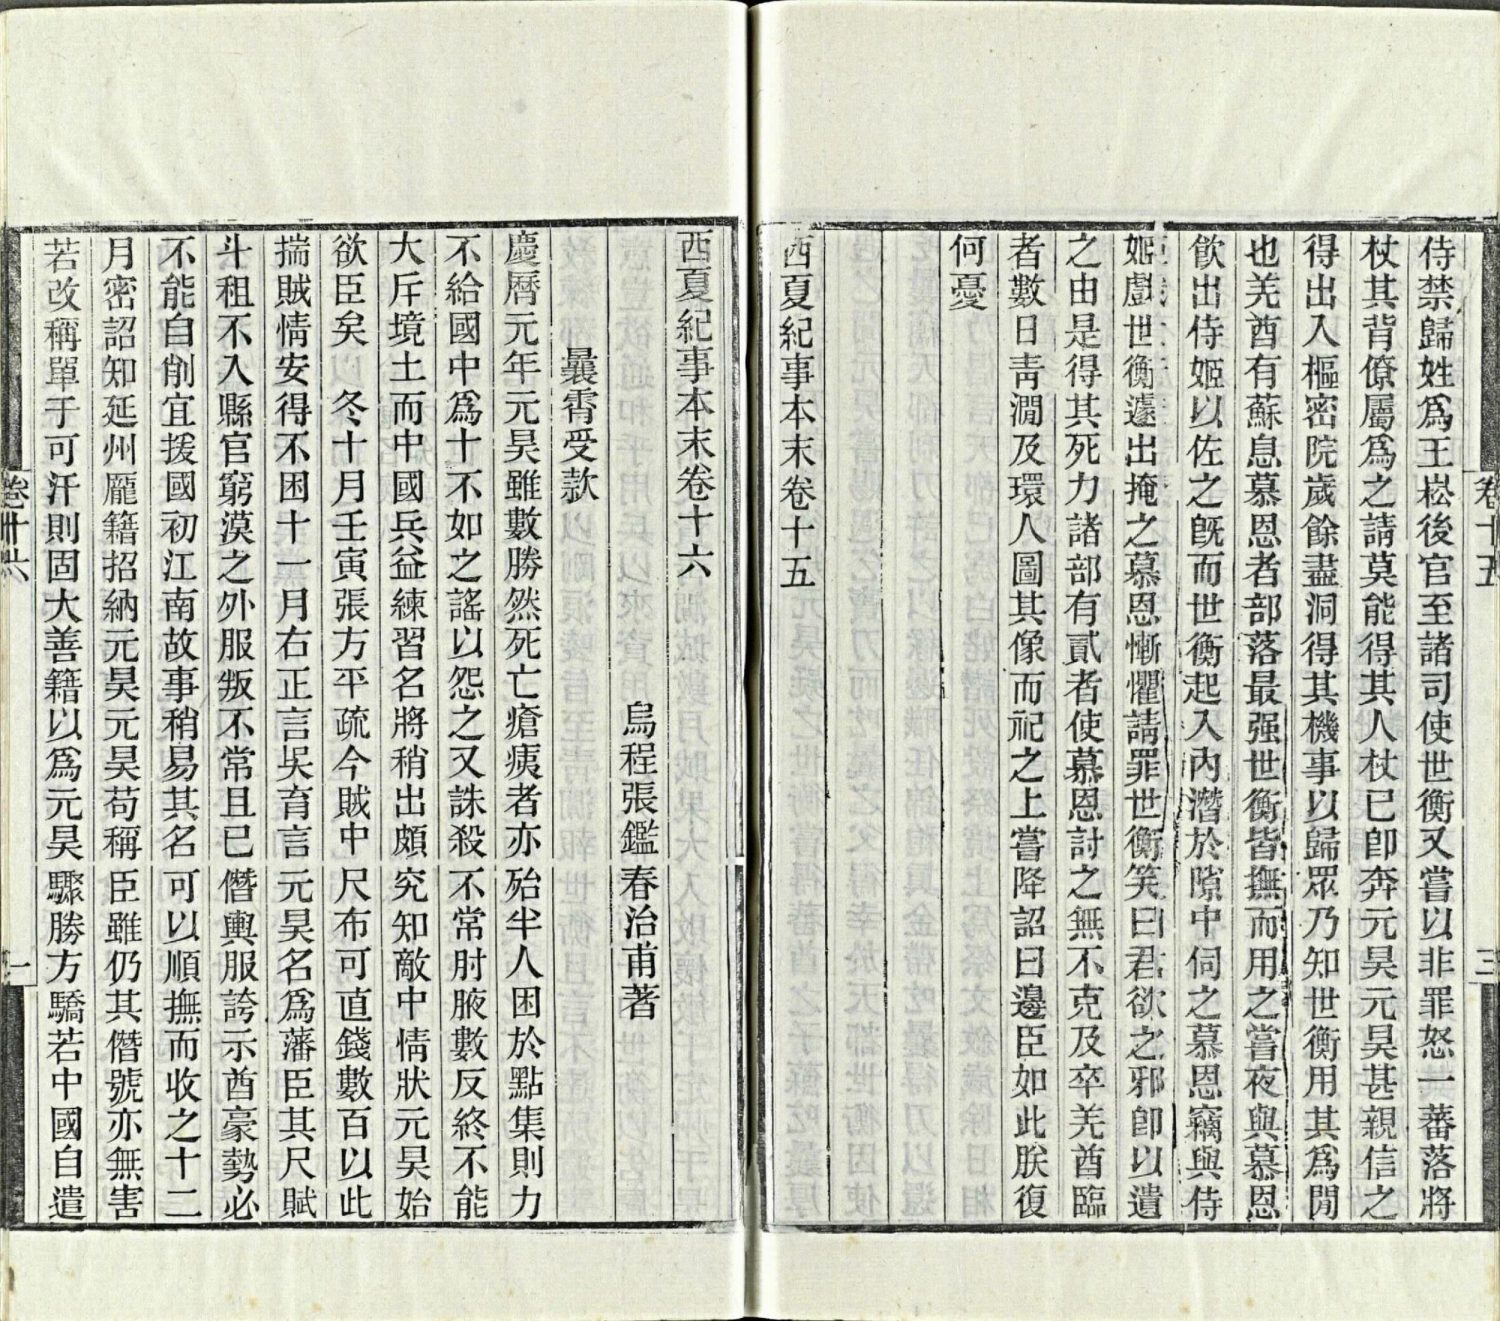 卷十五
三
侍禁歸姓爲王崧後官至諸司使世衡又嘗以非罪怒一蕃落將
杖其背僚屬爲之請莫能得其人杖已卽奔元昊元昊甚親信之
得出入樞密院歲餘盡洞得其機事以歸眾乃知世衡用其爲閒
也羌酋有蘇息慕恩者部落最强世衡皆撫而用之嘗夜與慕恩
飮出侍姬以佐之旣而世衡起入內潛於隙中伺之慕恩竊與侍
姬戲世衡遽出掩之慕恩慚懼請罪世衡笑曰君欲之邪卽以遺
之由是得其死力諸部有貳者使慕恩討之無不克及卒羌酋臨
者數日靑澗及環人圖其像而祀之上嘗降詔曰邊臣如此朕復
何憂
西夏紀事本末卷十五
西夏紀事本末卷十六
烏程張鑑春治甫著
曩霄受款
慶曆元年元昊雖數勝然死亡瘡痍者亦殆半人困於點集則力
不給國中爲十不如之謠以怨之又誅殺不常肘腋數反終不能
大斥境土而中國兵益練習名將稍出頗究知敵中情狀元昊始
欲臣矣　冬十月壬寅張方平疏今賊中尺布可直錢數百以此
揣賊情安得不困十一月右正言吳育言元昊名爲藩臣其尺賦
斗租不入縣官窮漠之外服叛不常且已僭輿服誇示酋豪勢必
不能自削宜援國初江南故事稍易其名可以順撫而收之十二
月密詔知延州龐籍招納元昊元昊苟稱臣雖仍其僭號亦無害
若改稱單于可汗則固大善籍以爲元昊驟勝方驕若中國自遣
卷十六
一